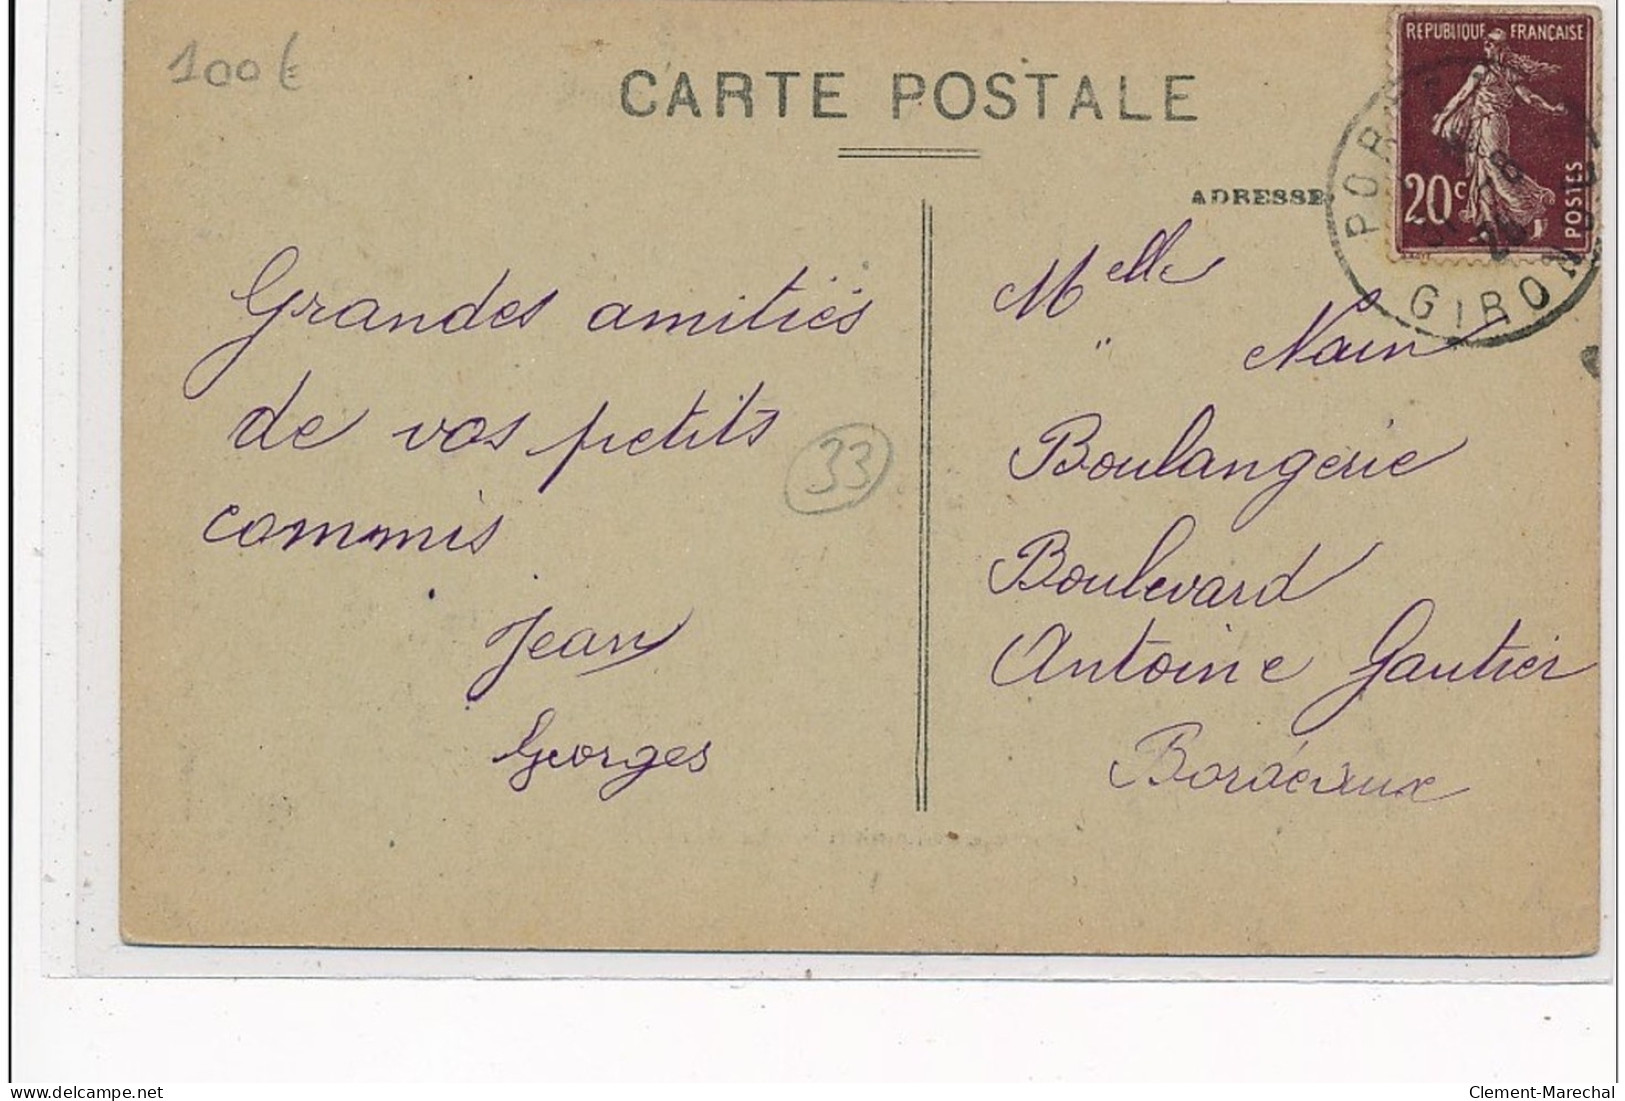 100€
CARTE POSTALE
REPUBLIQUE FRANÇAISE
20c
POSTES
GIRONDE
ADRESSE
Grandes amitiés
de vos petits
commis
Jean
Georges
33
Melle
" Nain
Boulangerie
Boulevard
Antoine Gautier
Bordeaux
delcampe.net
Clement-Marechal